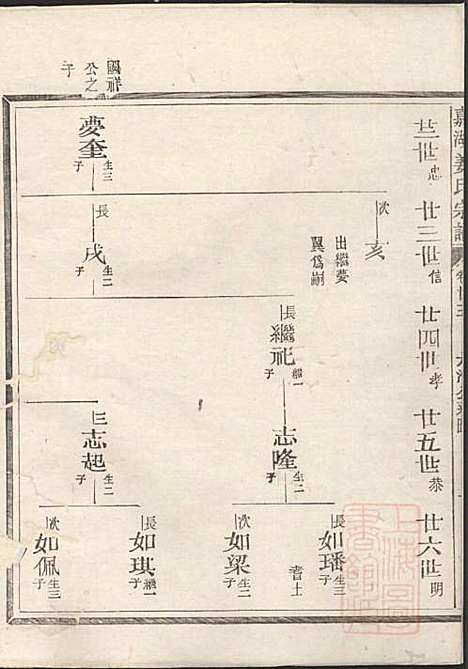 嘉湖姜氏宗譜
卷廿三
廿二世忠
廿三世信
廿四世孝
廿五世恭
廿六世明
國祥
公之
子
夢奎生三子
次亥
出繼夢
翼爲嗣
長戌生二子
長繼祀繼一子
志隆生二子
三志起生二子
長如璠生三子
耆士
次如梁生二子
長如琪繼一子
次如佩生三子
上海圖
書館藏